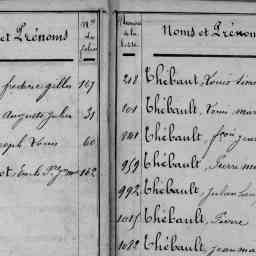 et Prénoms
N.os
de
folios
frederic gilles 167
Auguste Julien 31
Joseph Louis 60
162
Numéros
de la
Noms et Prénoms
218 Thébaut, Louis
101 Thébault, Louis mar
Thébault,
959 Thébault, Pierre m
992 Thébault, Julien
1015 Thébault, Pierre
1082 Thébault, jean ma